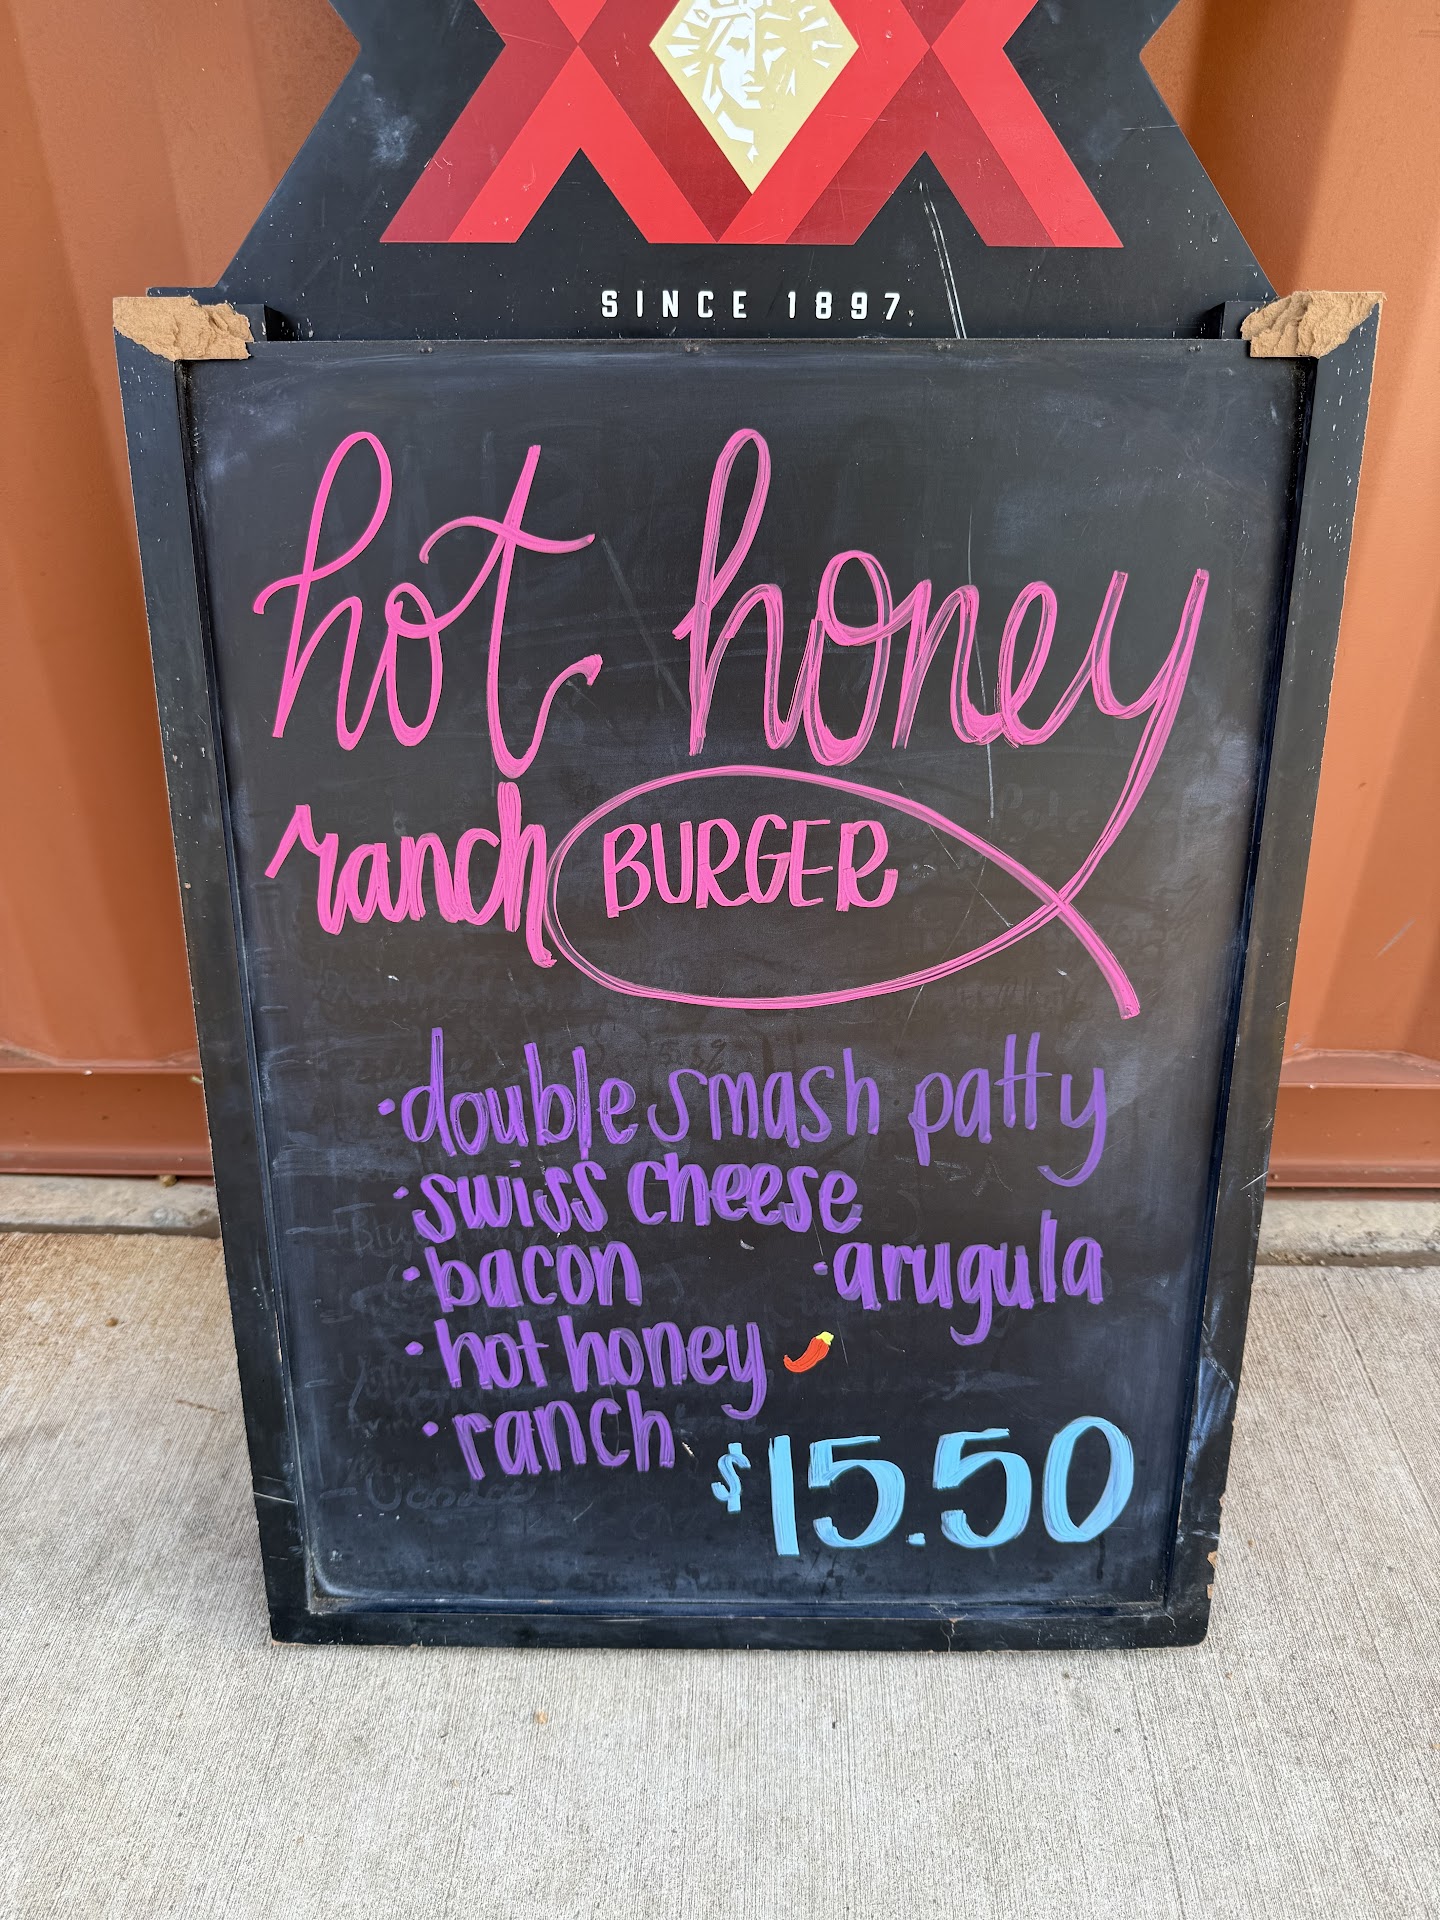 XX
SINCE 1897.
hot honey
ranch BURGER
•double smash patty
•swiss cheese
•bacon •arugula
•hot honey
•ranch
$15.50